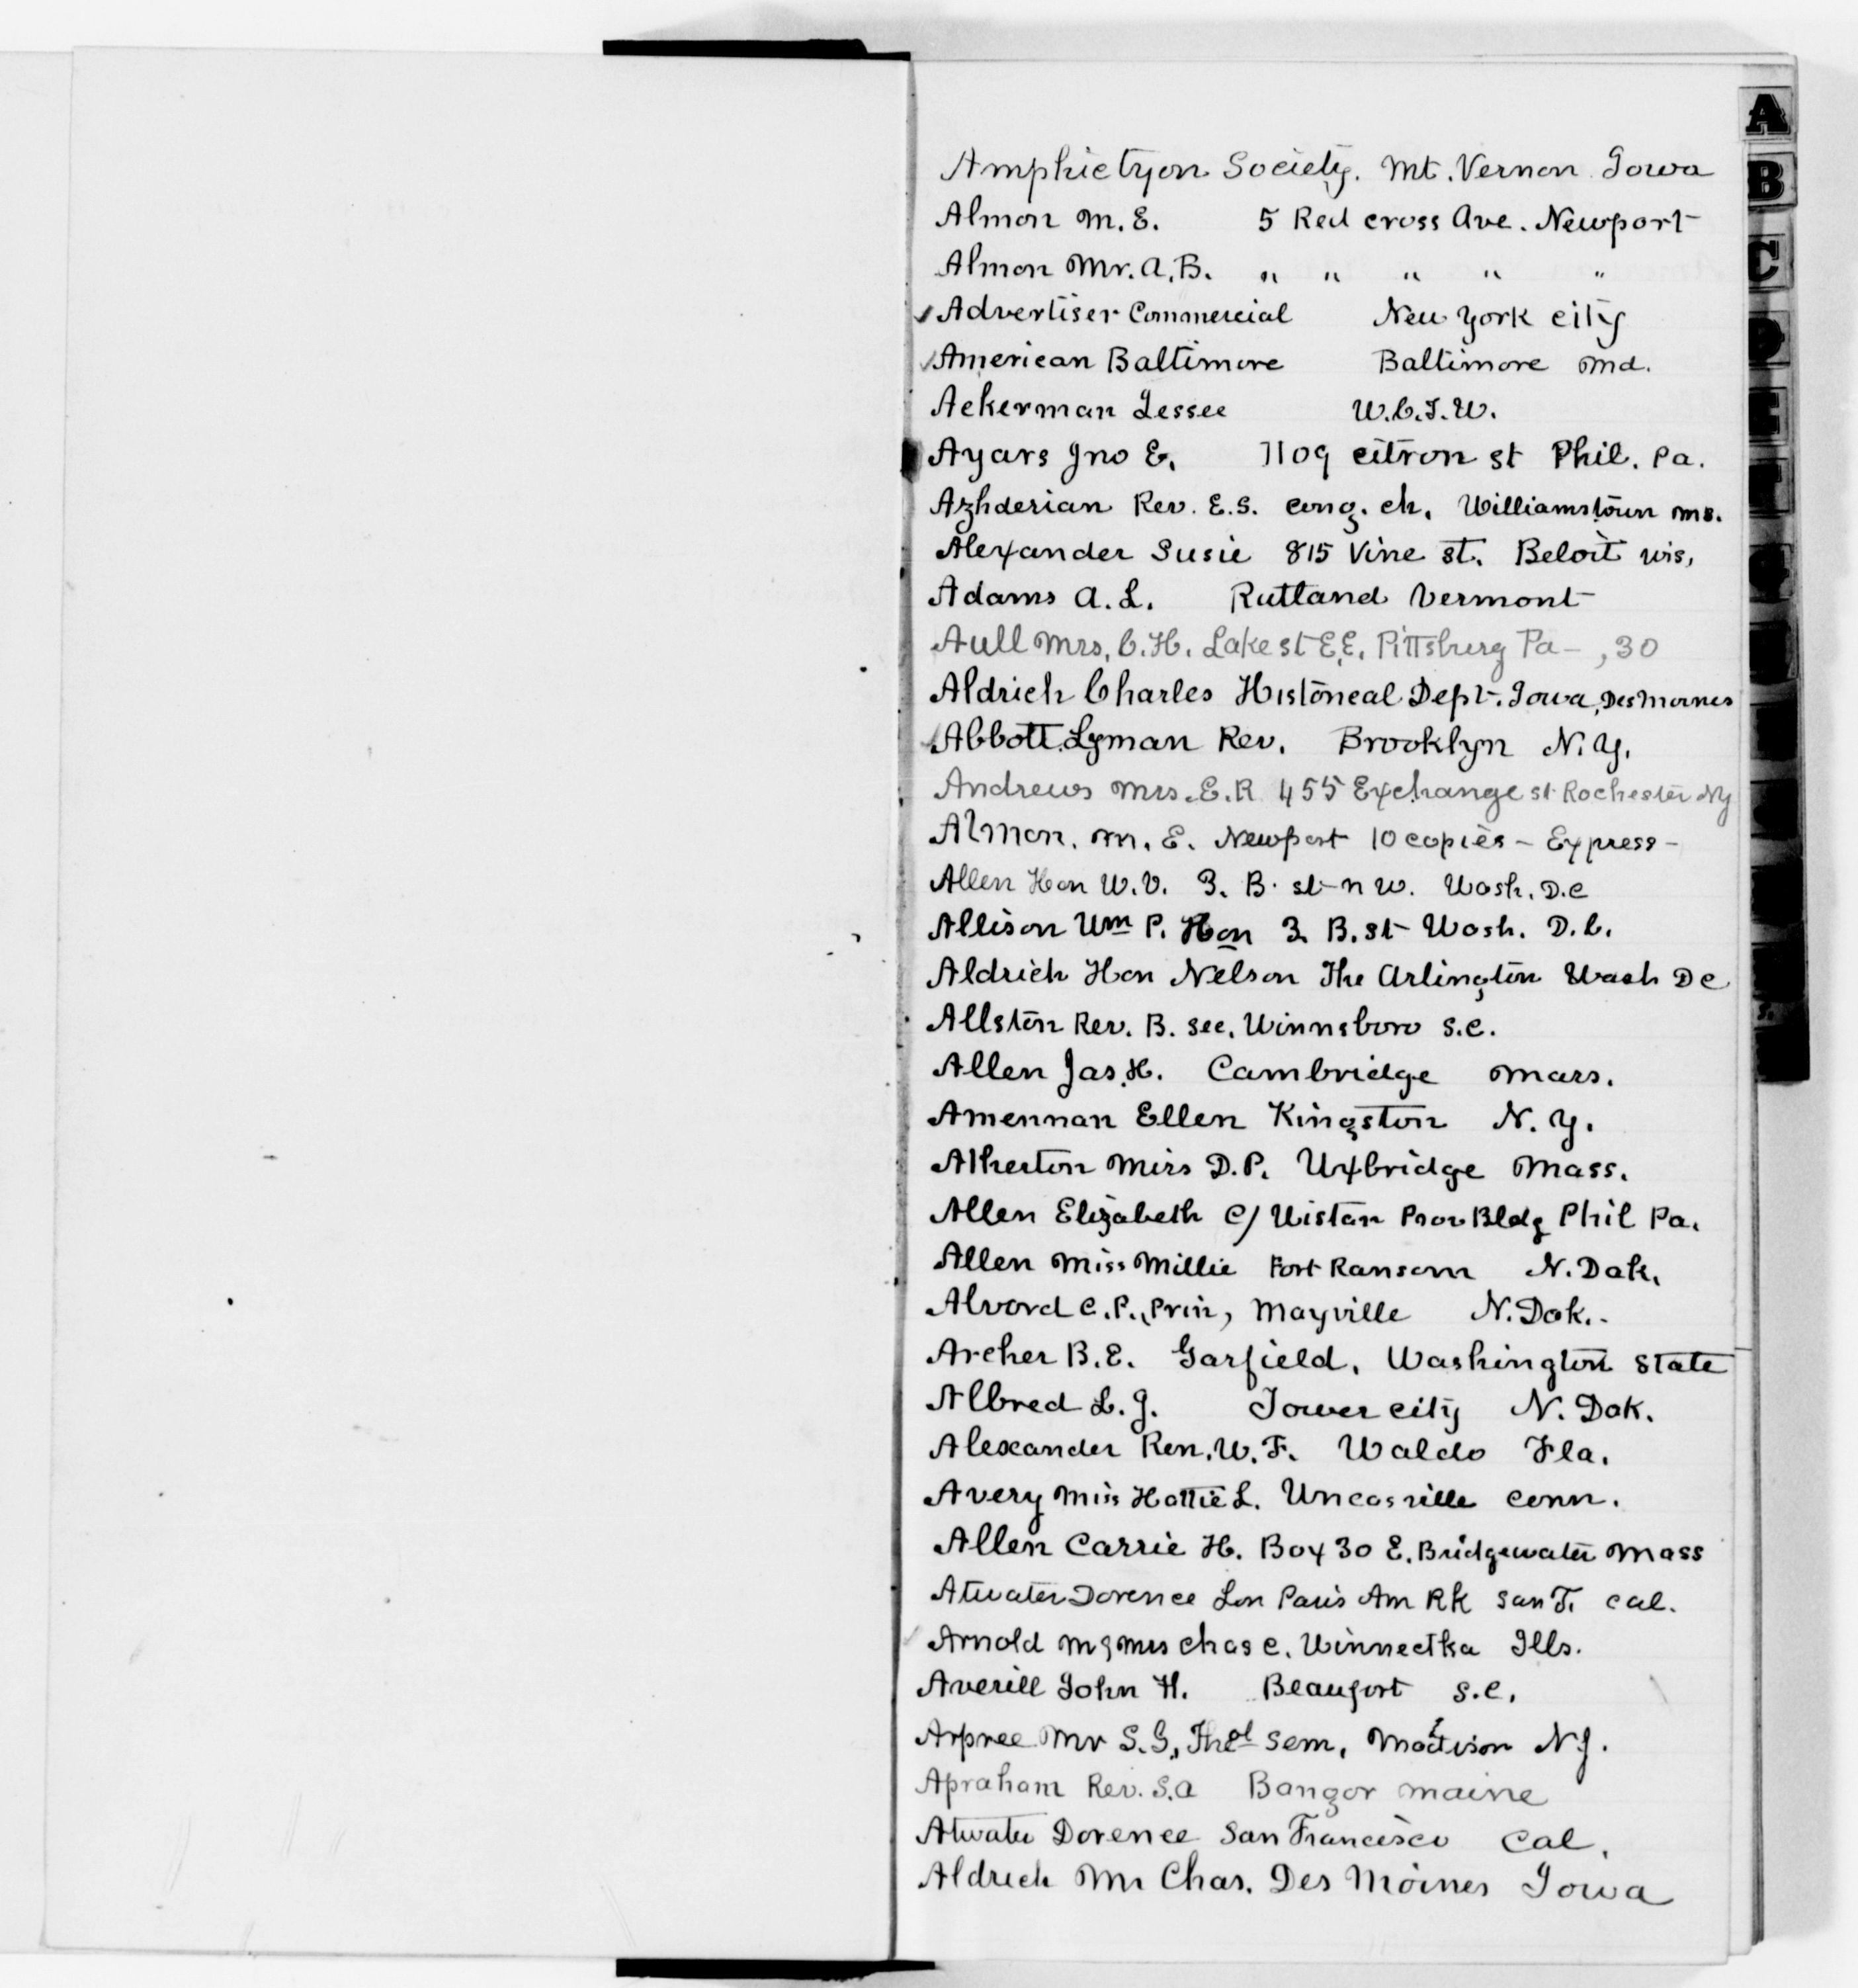 A
B
C
D
E
F
G
Amphictyon Society. Mt. Vernon Iowa
Almon M. E. 5 Red cross Ave. Newport
Almon Mr. A. B. " " " " "
Advertiser Commercial New York city
American Baltimore Baltimore Md.
Ackerman Jessee W.C.T.U.
Ayars Jno E. 1109 citron st Phil. Pa.
Azhderian Rev. E.S. cong. ch. Williamstown ms.
Alexander Susie 815 Vine st. Beloit wis,
Adams A. L. Rutland Vermont
Aull Mrs, C. H. Lake st E.E. Pittsburg Pa - , 30
Aldrich Charles Historical Dept. Iowa, Des Moines
Abbott Lyman Rev. Brooklyn N. Y.
Andrews Mrs. E. R 455 Exchange st Rochester NY
Almon. M. E. Newport 10 copies - Express -
Allen Hon W. V. 3. B. st- n w. Wash. D.C
Allison Wm P. Hon 3 B. st- Wash. D. C.
Aldrich Hon Nelson The Arlington Wash D C
Allston Rev. B. sec. Winnsboro S.C.
Allen Jas. H. Cambridge Mass.
Amennan Ellen Kingston N. Y.
Atherton Miss D. P. Uxbridge Mass.
Allen Elizabeth C/ Wistar Prov Bldg Phil Pa.
Allen Miss Millie Fort Ransom N. Dak.
Alvord C. P., Prin, Mayville N. Dak..
Archer B. E. Garfield, Washington State
Albred L. J. Tower city N. Dak.
Alexander Rev. W. F. Waldo Fla.
Avery Miss Hattie L. Uncasville Conn.
Allen Carrie H. Box 30 E. Bridgewater Mass
Atwater Dorence Lon Paris Am Bk San F. Cal.
Arnold M & Mrs Chas C. Winnectka Ills.
Averill John H. Beaufort S.C.
Arpree Mr S. G., Theol Sem, Madison N J.
Apraham Rev. S. A Bangor Maine
Atwater Dorence San Francisco Cal.
Aldrich Mr Chas. Des Moines Iowa